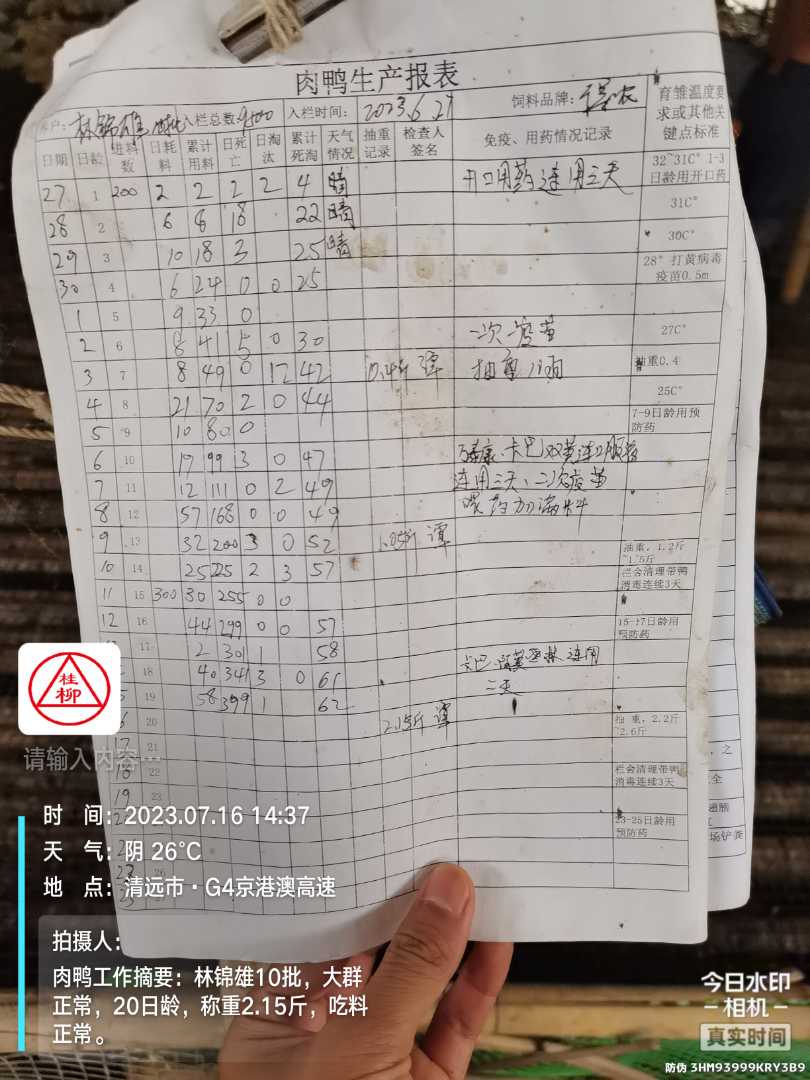 肉鸭生产报表
户: 林锦雄 入栏总数: 9400 入栏时间: 2023.6.27 饲料品牌: 育雏温度要求或其他关键点标准
日期 日龄 进料数 日耗料 累计用料 日死亡 日淘汰 累计死淘 天气情况 抽重记录 检查人签名 免疫、用药情况记录
27 1 200 2 2 2 2 4 晴 开口用药连用三天 32~31C° 1-3日龄用开口药
28 2 6 8 18 22 晴 31C°
29 3 10 18 3 25 晴 30C°
30 4 6 24 0 0 25 28° 打黄病毒疫苗0.5m
1 5 9 33 0
2 6 8 41 5 0 30 一次疫苗 27C°
3 7 8 49 0 12 42 0.4斤 谭 抽重0.4
4 8 21 70 2 0 44 25C°
5 9 10 80 0 7-9日龄用预防药
6 10 19 99 3 0 47 卡巴 双黄连口服液
7 11 12 111 0 2 49 连用三天、二次疫苗
8 12 57 168 0 0 49 喂药加满料
9 13 32 200 3 0 52 1.05斤 谭 抽重，1.2斤~1.5斤
10 14 25 225 2 3 57 栏舍清理带鸭消毒连续3天
11 15 300 30 255 0 0
12 16 44 299 0 0 57 15-17日龄用预防药
17 2 301 1 58
18 40 341 3 0 61 卡巴 连用
19 58 399 1 62 三天
20 2.15斤 谭 抽重，2.2斤~2.6斤
17 21
18 22 栏舍清理带鸭消毒连续3天
19 23
23-25日龄用预防药
桂柳
请输入内容…
时 间: 2023.07.16 14:37
天 气: 阴 26℃
地 点: 清远市·G4京港澳高速
拍摄人:
肉鸭工作摘要: 林锦雄10批，大群
正常，20日龄，称重2.15斤，吃料
正常。
今日水印
相机
真实时间
防伪 3HM93999KRY3B9